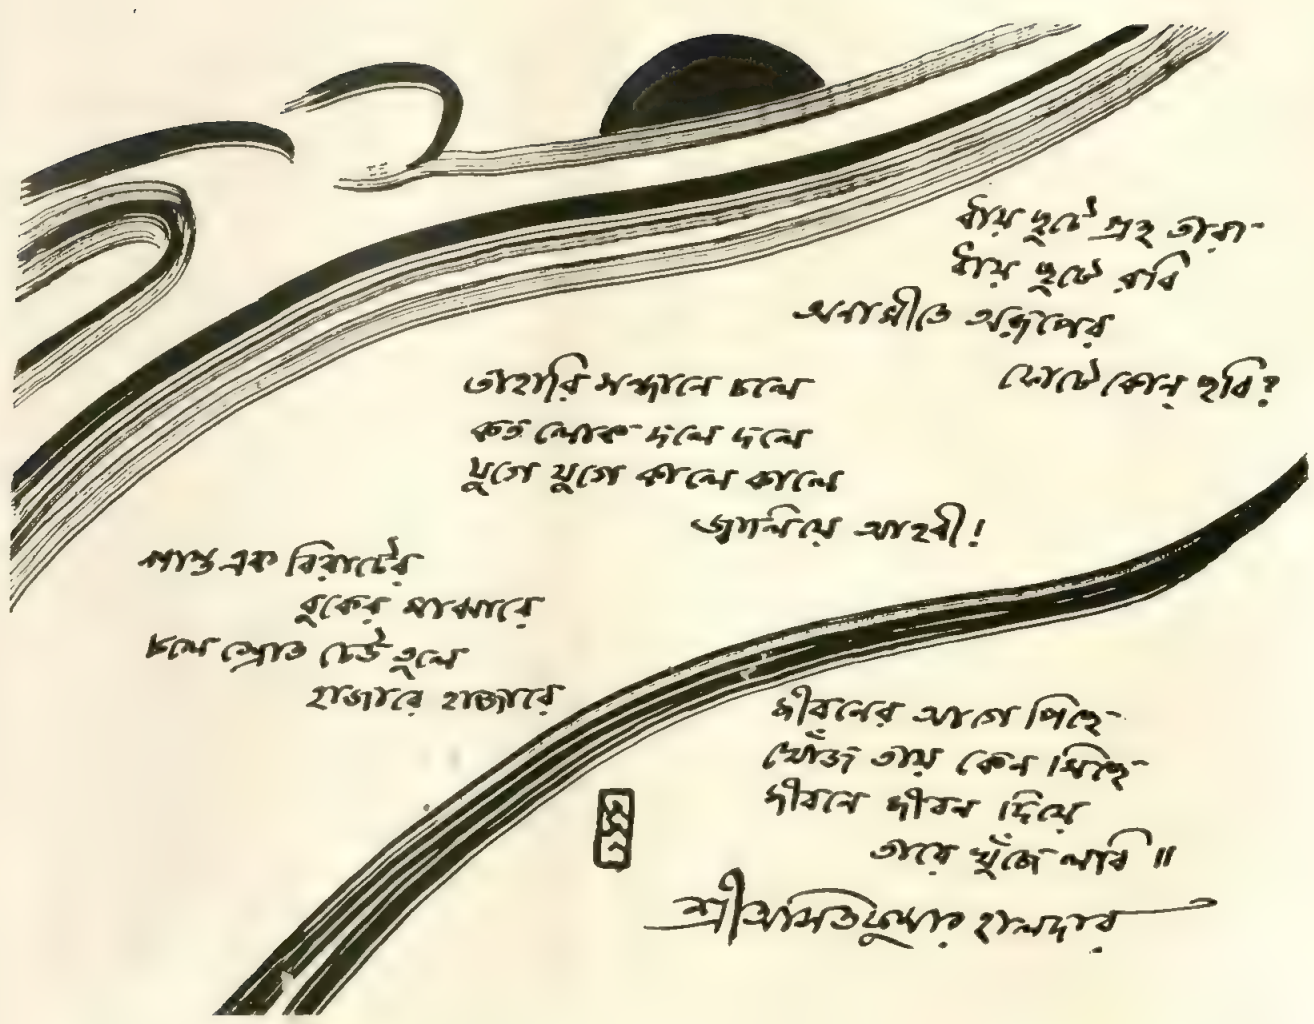 ধায় ছুটে গ্রহ তারা
ধায় ছুটে রবি
অসীমীতে অরূপের
ফোটে কোন্ ছবি?
তাহারি সন্ধানে চলে
কত লোক দলে দলে
যুগে যুগে কালে কালে
জ্বালিয়ে আহবী!
শান্ত এক বিরাটের
বুকের মাঝারে
চলে স্রোত ঢেউ তুলে
হাজারে হাজারে
জীবনের আগে পিছে
খোঁজ তায় কেন মিছে
জীবনে জীবন দিয়ে
তারে খুঁজে লবি ॥
শ্রীঅসিতকুমার হালদার